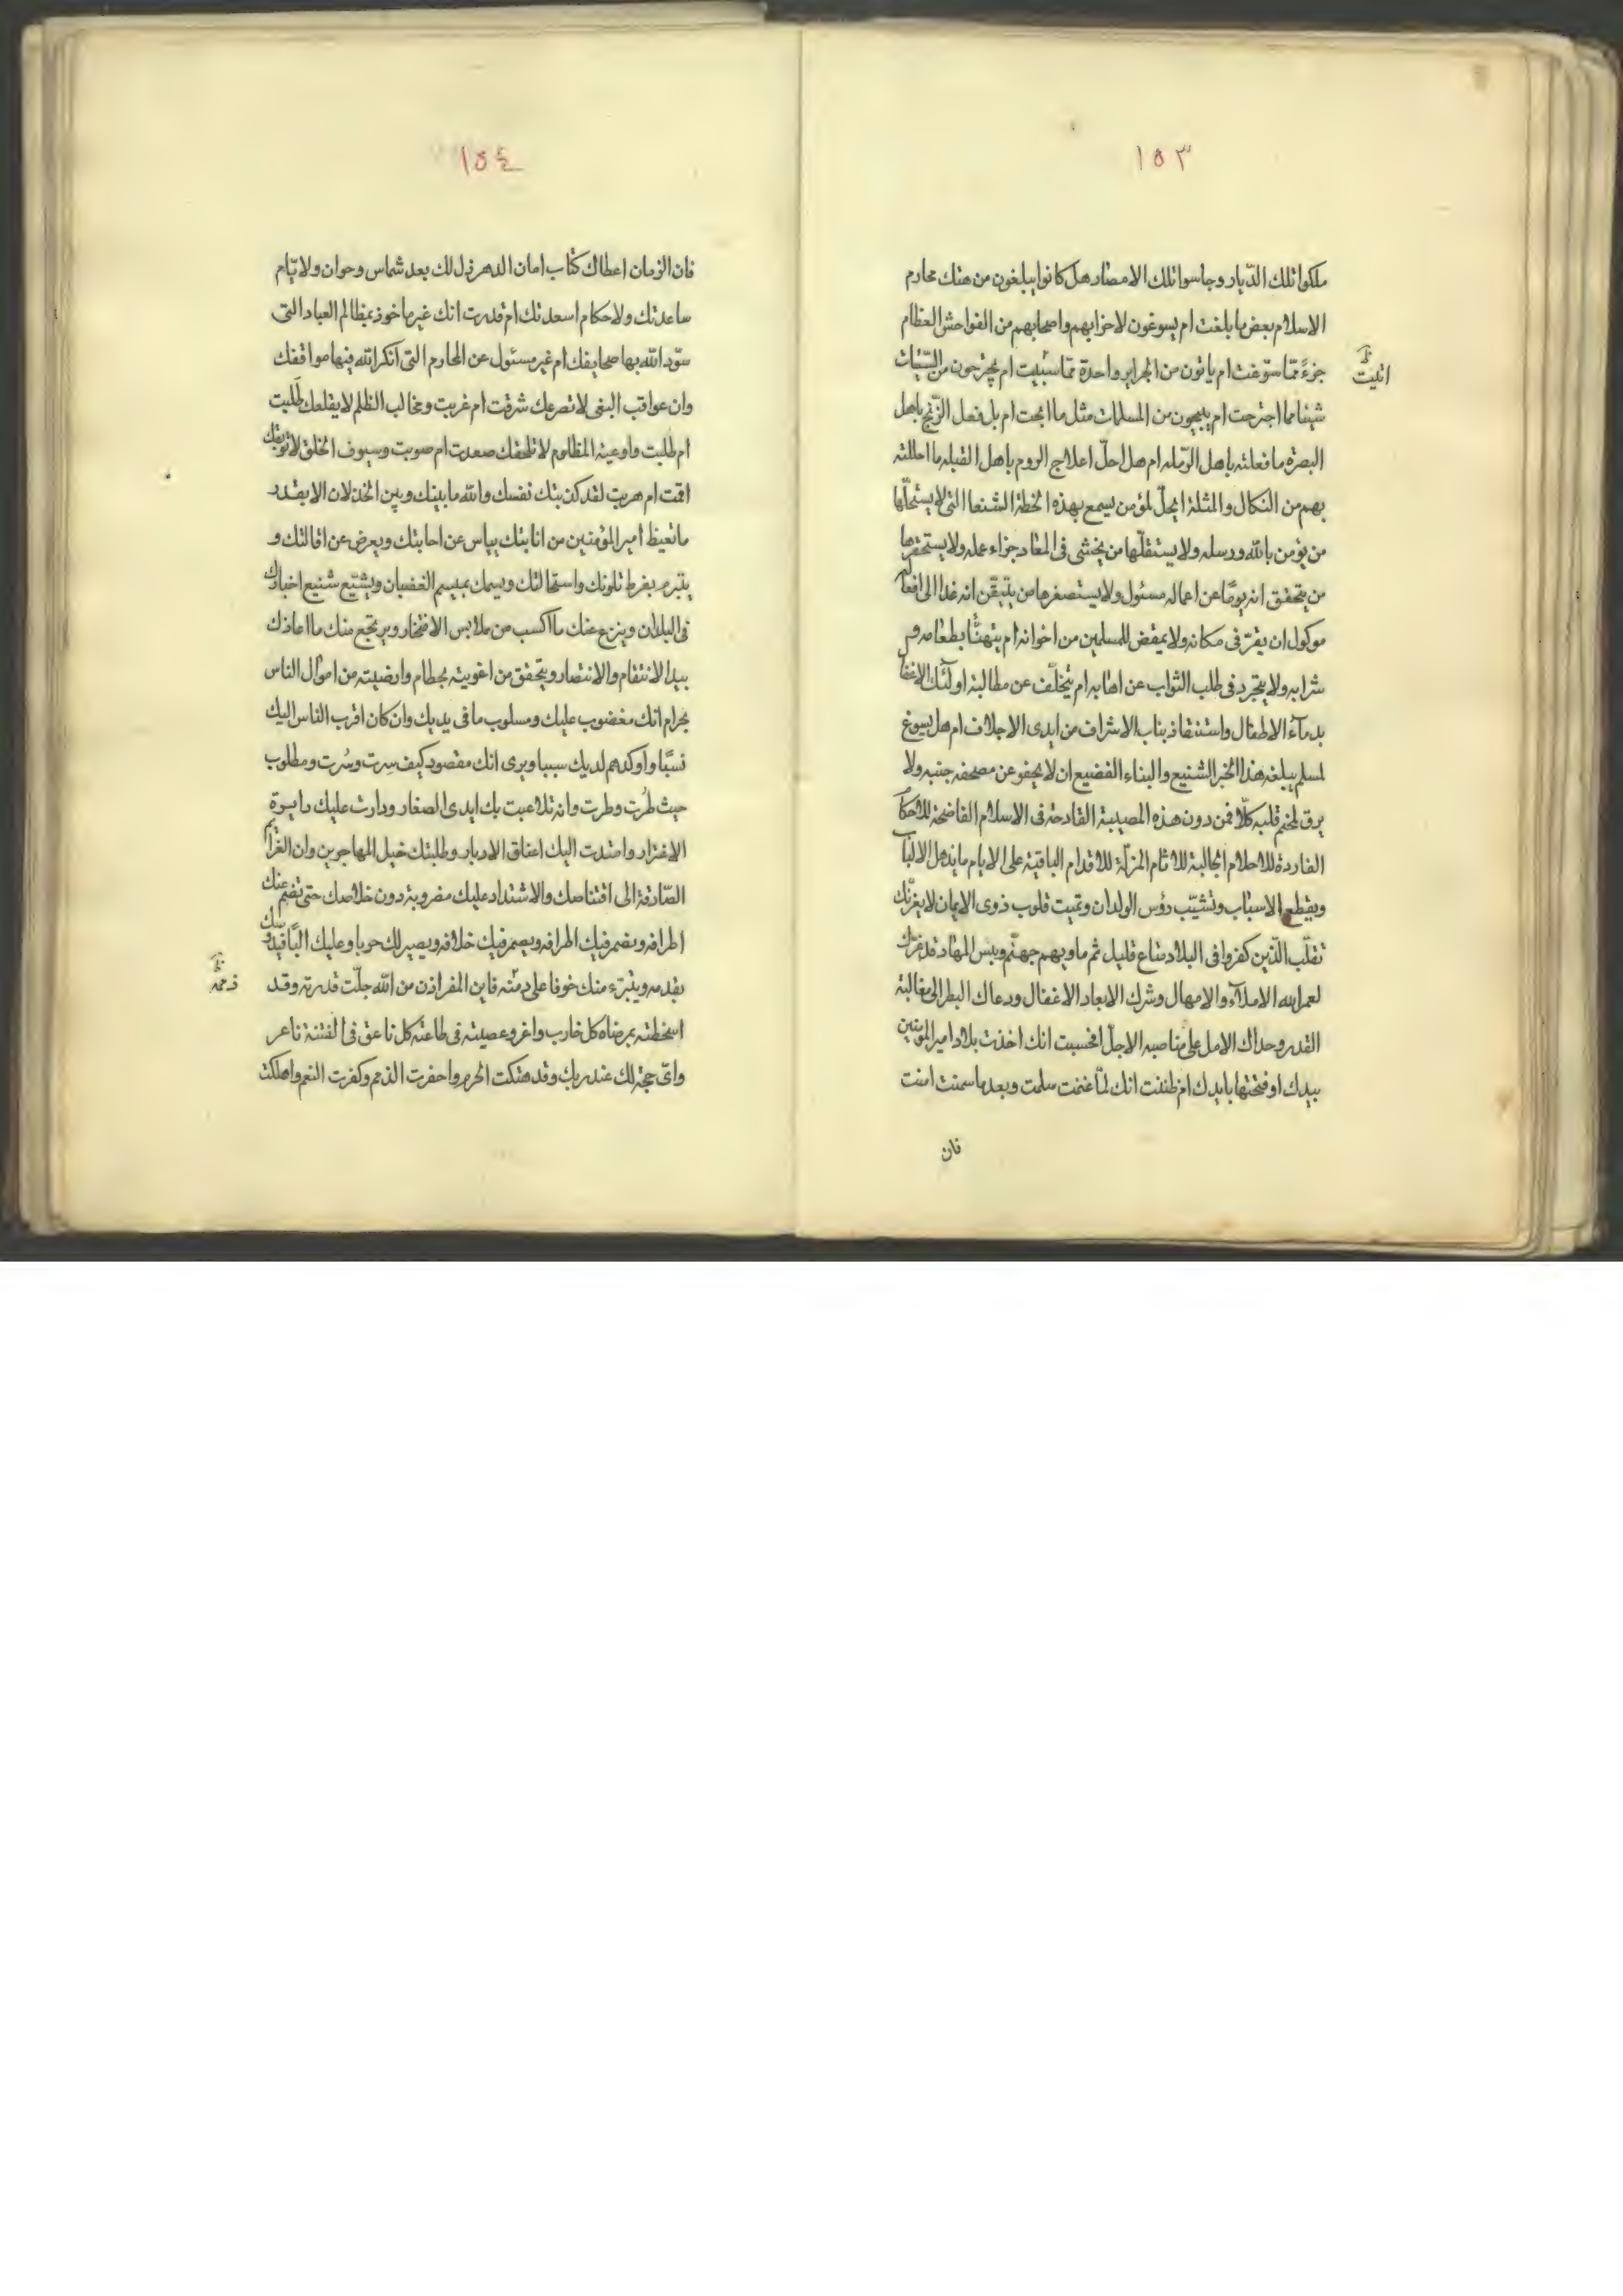 ١٥٣
ملكوا تلك الديار وجاسوا تلك الامصار هل كانوا يبلغون من هتك محارم
الاسلام بعض ما بلغت ام يسوغون لاحزابهم واصحابهم من الفواحش العظام
جزءً ممّا سوّغت ام ياتون من الجراير واحدة ممّا سبيت ام يجترحون من السّيّئات
اتيت
شيئا مما اجترحت ام يبيحون من المسلمات مثل ما ابحت ام بل فعل الزّنج باهل
البصرة ما فعلته باهل الرّمله ام هل احلّ اعلاج الروم باهل القبله ما احللته
بهم من النكال والمثلة ايحلّ لمؤمن يسمع بهذه الخطة الشنعا التى لا يستحلّها
من يؤمن بالله ورسله ولا يستقلّها من يخشى فى المعاد جزاء عمله ولا يستحقرها
من يتحقق انه يومًا عن اعماله مسئول ولا يستصغرها من يتيقّن انه غدا الى افعاله
موكول ان يقرّ فى مكانه ولا يمتعض للمسلمين من اخوانه ام يتهنّا بطعامه و
شرابه ولا يتجرد فى طلب الثواب عن اهابه ام يتخلّف عن مطالبة اولئك الاغفا
بدمآء الاطفال واستنقاذ بنات الاشراف من ايدى الاجلاف ام هل يسوغ
لمسلم يبلغه هذا الخبر الشنيع والبناء الفضيع ان لا يجفو عن مضجعه جنبه ولا
يرق قلبه كلّا فمن دون هذه المصيبة القادحة فى الاسلام الفاضحة للاحكا
للاحلام الجالبة للاثام المزلّة للاقدام الباقية على الايام ما يذهل الالبا
ويقطع الاسباب وتشيّب رؤس الولدان وتميت قلوب ذوى الايمان لا يغرّنك
تقلّب الّذين كفروا فى البلاد متاع قليل ثم ماويهم جهنّم وبيس المهاد قد غرّك
لعمر الله الاملآء والامهال وشرك الابعاد الاغفال ودعاك البطر الى مغالبة
القدر وحداك الامل على مناصبه الاجل افحسبت انك اخذت بلاد امير المؤمنين
بيدك او فتحتها بايدك ام ظننت انك لمّا غنمت سلمت وبعد ما سمنت امنت
فان
١٥٤
فان الزمان اعطاك كتاب امان الدهر ذل لك بعد شماس وحوان ولا يّام
ساعدتك ولاحكام اسعدتك ام قدرت انك غير ماخوذ بمظالم العباد التى
سوّد الله بها صحايفك ام غير مسئول عن المحارم التى انكر الله فيها مواقفك
وان عواقب البغى لا تصرعك شرقت ام غربت ومخالب الظلم لا يقلعك
ام طلبت وادعية المظلوم لا تلحقك صعدت ام صوبت وسيوف الخلق لا توبقك
اقمت ام هربت لقد كذبتك نفسك والله ما بينك وبين الخذلان الا بقدر
ما تغيظ أمير المؤمنين من انابتك يياس عن اجابتك ويعرض عن اقالتك و
يتبرم بفرط تلونك واستحالتك ويسمك بميسم الغضبان ويشيّع شنيع اخبارك
فى البلدان وينزع عنك ما اكسب من ملابس الافتخار ويرتجع منك ما اعادك
بيد الانتقام والانتصار ويتحقق من اغويته بحطام وارضيته من اموال الناس
بحرام انك مغضوب عليك ومسلوب ما فى يديك وان كان اقرب الناس اليك
نسبًا واوكدهم لديك سببا ويرى انك مقصود كيف سِرت وسُرت ومطلوب
حيث طُرت وطرت وانه تلاعبت بك ايدى الصغار ودارت عليك دايرة
الاغترار وامتدت اليك اعناق الادبار وطلبتك خيل المهاجرين وان
الصّادقة الى اقتناصك والاشتداد عليك مضروبة دون خلاصك حتى تضم عنك
اطرافه ويضمر فيك خلافه ويصير لك حربا وعليك البًا
بقدمه ويتبرّء منك خوفا على دمّته فاين المفر اذن من الله جلّت قدرته وقد
ذمه
اسخطته بمرضاه كل خارب واغر وعصيته فى طاعته كل ناعق فى الفتنة ناعر
واىّ حجة لك عند ربك وقد هتكت الحرم واحفرت الذمم وكفرت النعم واهلكت